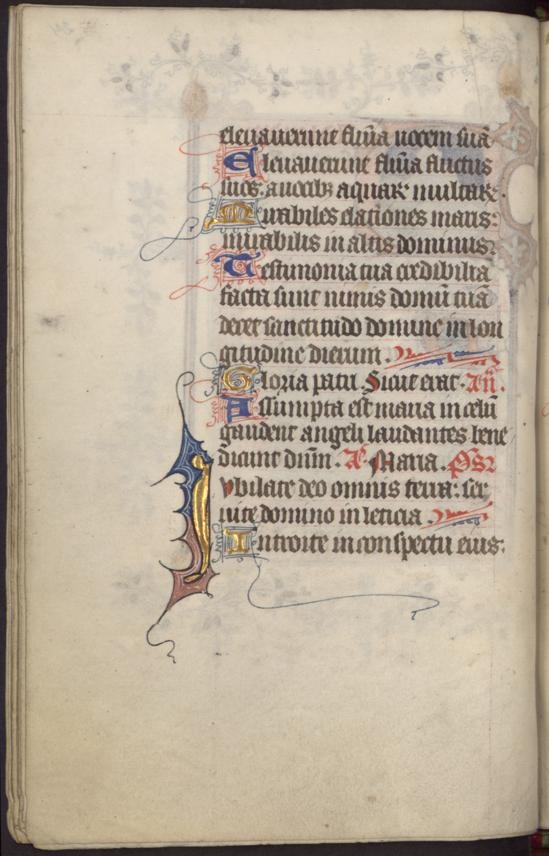 eleuauerunt flumīa uocem suā
Eleuauerunt flumīa fluctus
suos: a uocibꝫ aquaꝝ multaꝝ.
Mirabiles elationes maris:
mirabilis in altis dominus.
Testimonia tua credibilia
facta sunt nimis domū tuā
decet sanctitudo domine in lon
gitudine dierum.
Gloria patri. Sicut erat. Añ.
Assumpta est maria in celū
gaudent angeli laudantes bene
dicunt dñm. A. Maria. Ps.
Iubilate deo omnis terra: ser
uite domino in leticia.
Introite in conspectu eius: